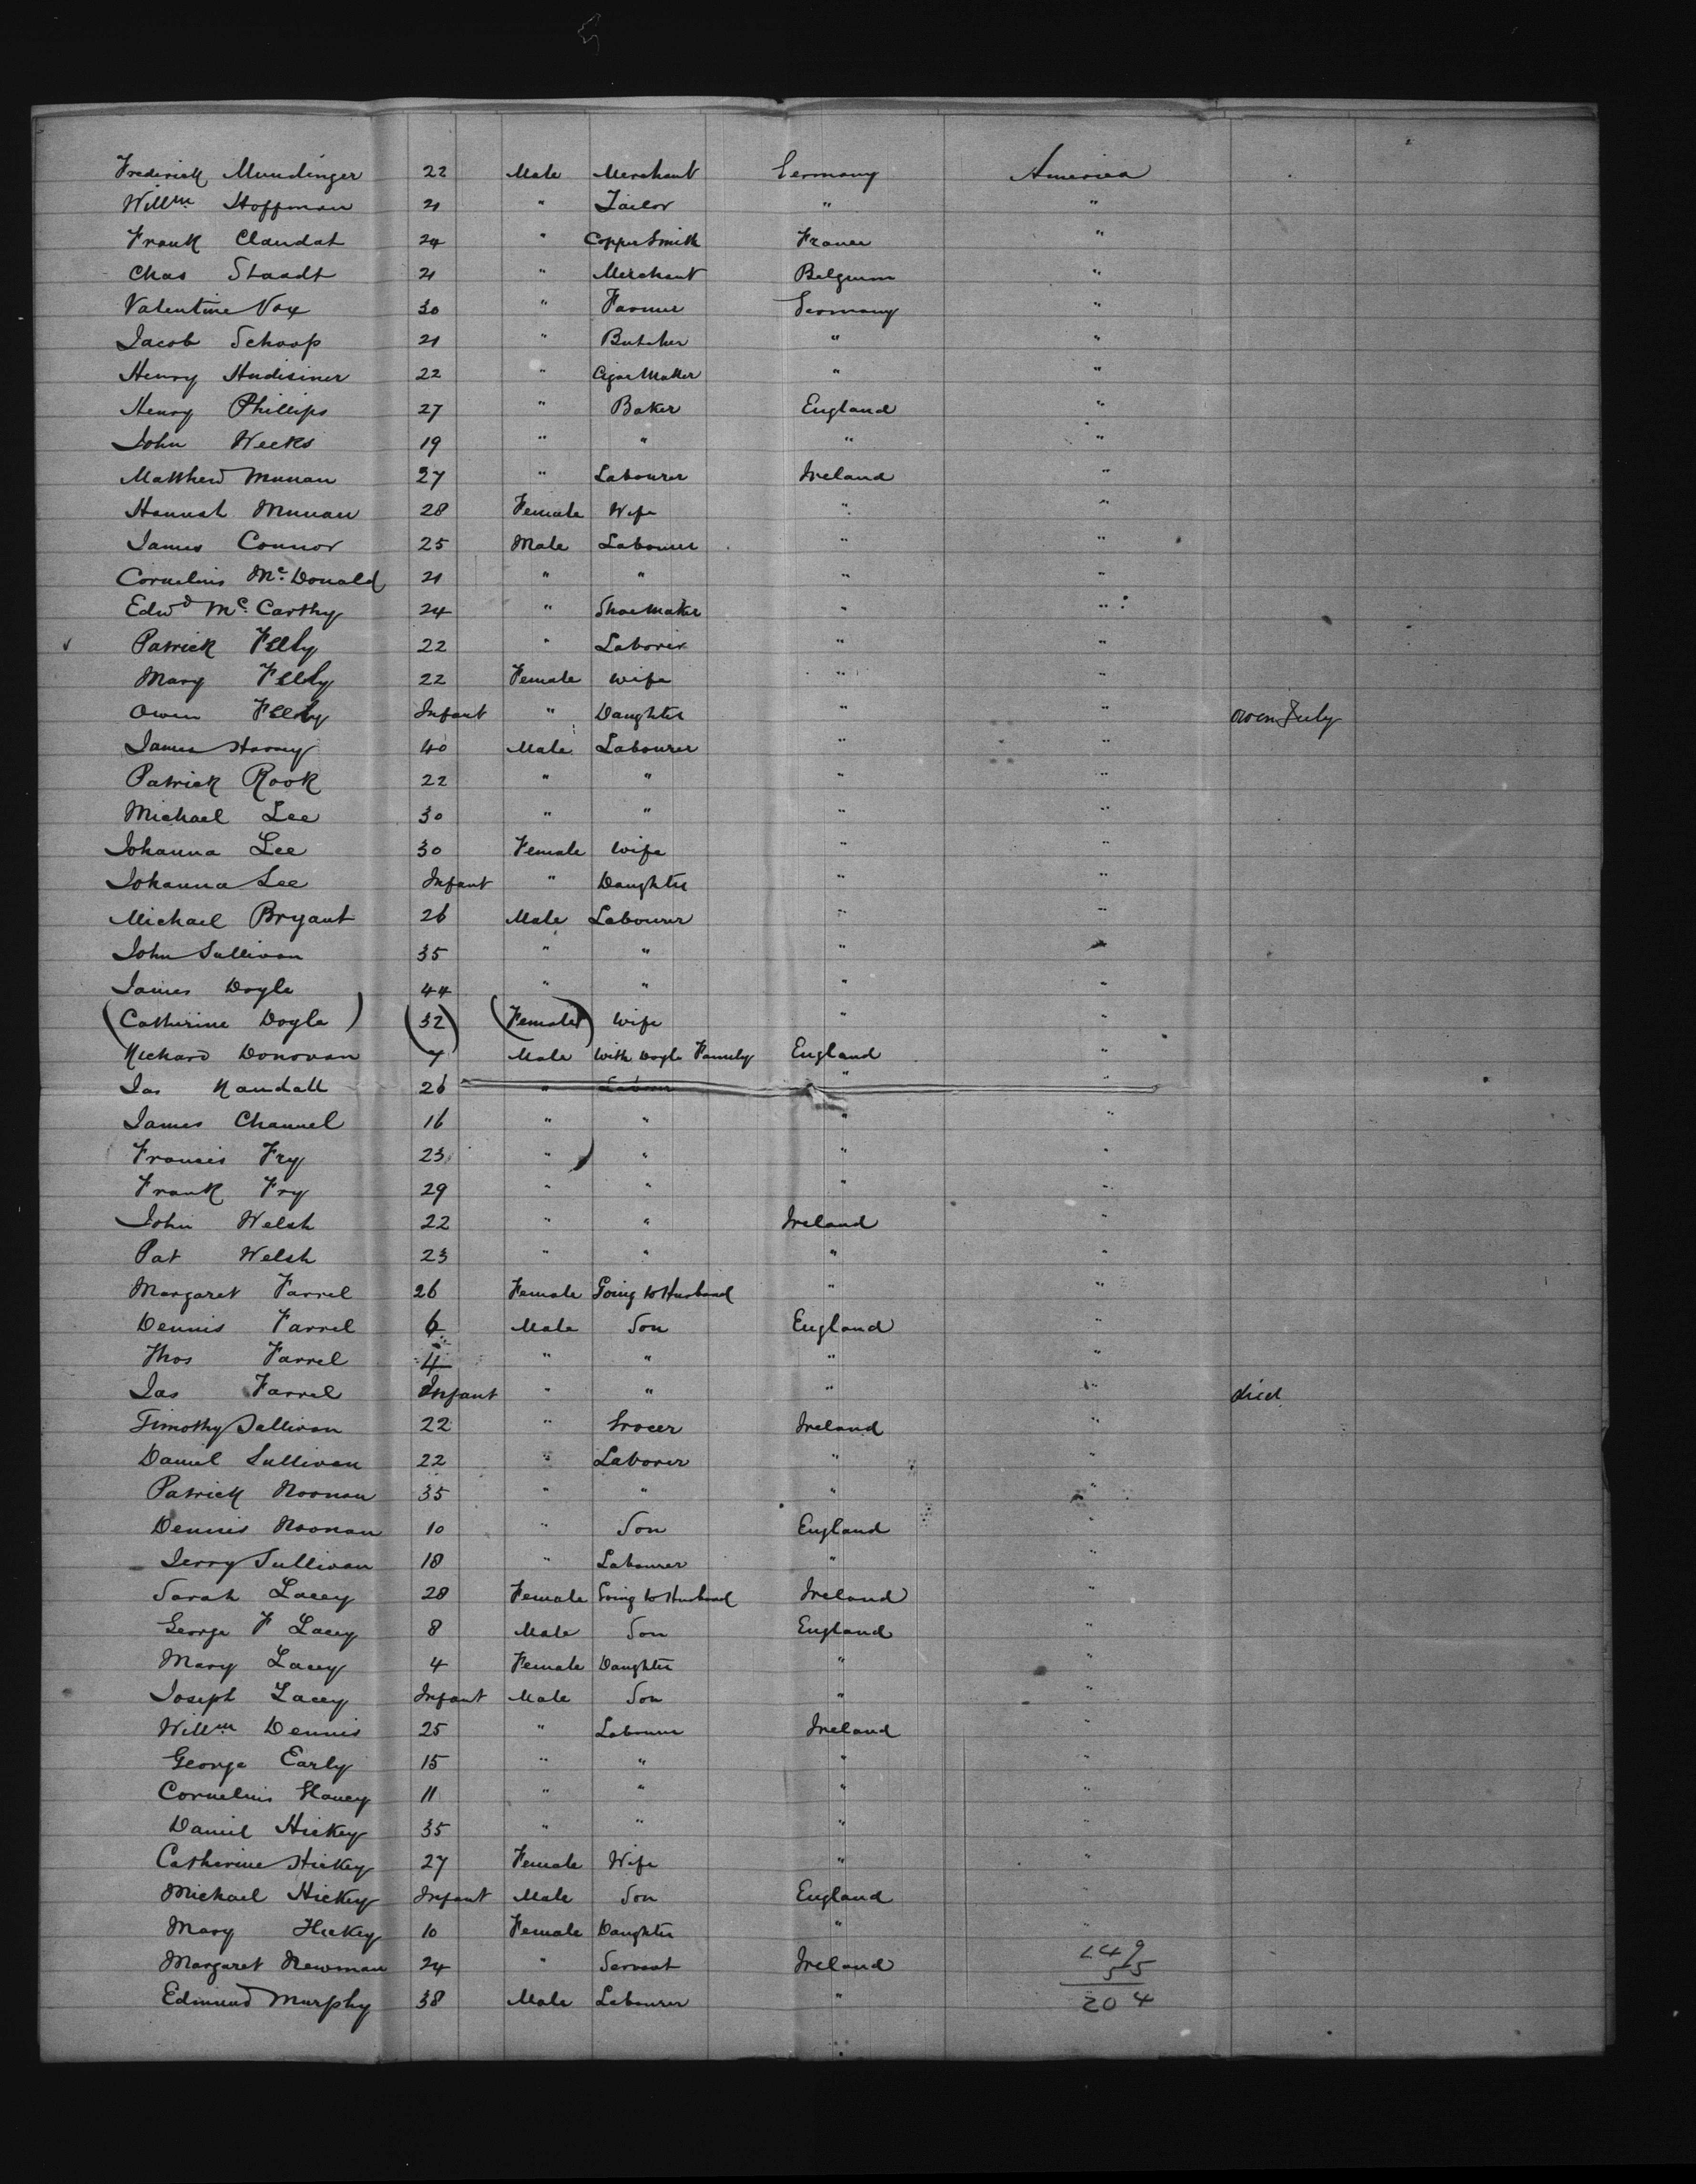 Frederick Mundinger 22 Male Merchant Germany America
Willm Hoffman 21 " Tailor " "
Frank Claudat 24 " Copper Smith France "
Chas Staadt 21 " Merchant Belgium "
Valentine Vox 30 " Farmer Germany "
Jacob Schoop 21 " Butcher " "
Henry Hudisiner 22 " Cigar Maker " "
Henry Phillips 27 " Baker England "
John Weeks 19 " " " "
Matthew Munan 27 " Labourer Ireland "
Hannah Munan 28 Female Wife " "
James Connor 25 Male Labourer " "
Cornelius Mc Donald 21 " " " "
Edwd Mc Carthy 24 " Shoe Maker " "
Patrick 22 " Laborer " "
Mary 22 Female Wife " "
Owen Infant " Daughter " " Owen
James 40 Male Labourer " "
Patrick Rook 22 " " " "
Michael Lee 30 " " " "
Johanna Lee 30 Female Wife " "
Johanna Lee Infant " Daughter " "
Michael Bryant 26 Male Labourer " "
John Sullivan 35 " " " "
James Doyle 44 " " " "
(Catherine Doyle) (32) (Female) Wife " "
Richard Donovan 7 Male With Doyle Family England "
Jas Randall 26 " Labour " "
James Channel 16 " " " "
Francis Fry 23 " " " "
Frank Fry 29 " " " "
John Welsh 22 " " Ireland "
Pat Welsh 23 " " " "
Margaret Farrel 26 Female Going to Husband " "
Dennis Farrel 6 Male Son England "
Thos Farrel 4 " " " "
Jas Farrel Infant " " " " died
Timothy Sullivan 22 " Grocer Ireland "
Daniel Sullivan 22 " Laborer " "
Patrick Noonan 35 " " " "
Dennis Noonan 10 " Son England "
Jerry Sullivan 18 " Labourer " "
Sarah Lacey 28 Female Going to Husband Ireland "
George F Lacey 8 Male Son England "
Mary Lacey 4 Female Daughter " "
Joseph Lacey Infant Male Son " "
Willm Dennis 25 " Labourer Ireland "
George Early 15 " " " "
Cornelius Haney 11 " " " "
Daniel Hickey 35 " " " "
Catherine Hickey 27 Female Wife " "
Michael Hickey Infant Male Son England "
Mary Hickey 10 Female Daughter " "
Margaret Newman 24 " Servant Ireland 149
55
Edmund Murphy 38 Male Labourer " 204